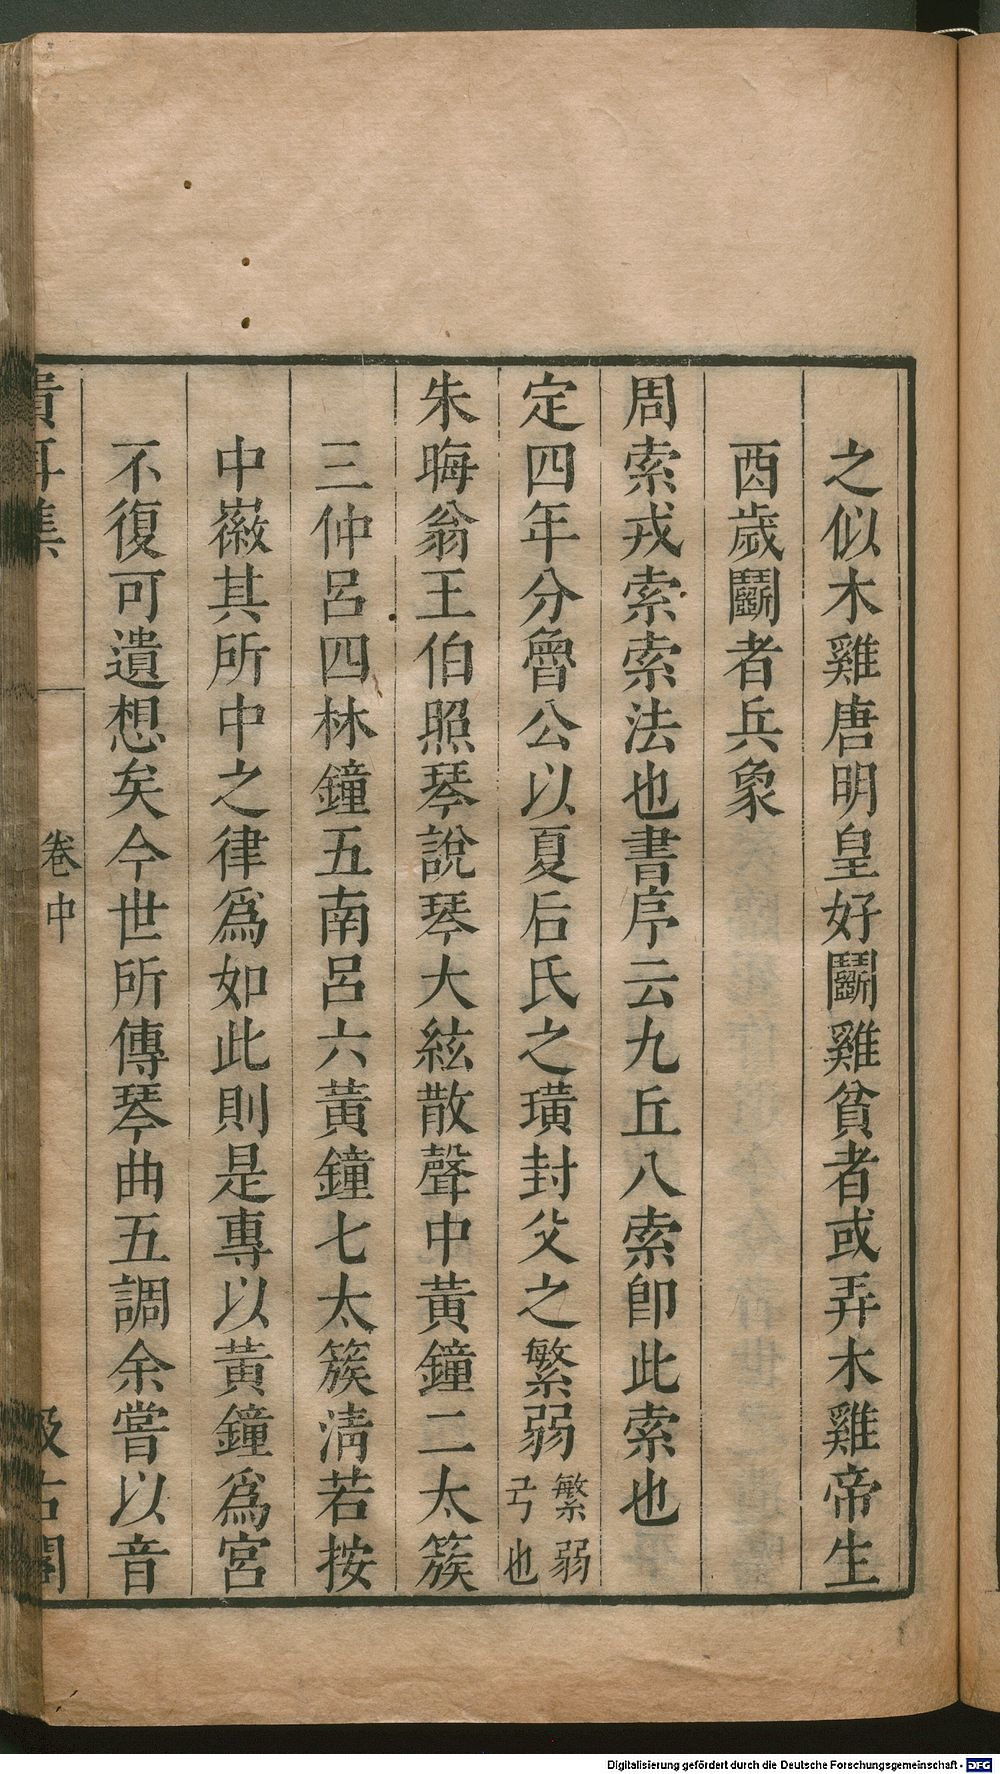 之似木雞唐明皇好鬭雞貧者或弄木雞帝生
酉歲鬭者兵象
周索戎索索法也書序云九丘八索卽此索也
定四年分魯公以夏后氏之璜封父之繁弱繁弱弓也
朱晦翁王伯照琴說琴大絃散聲中黃鐘二太簇
三仲呂四林鐘五南呂六黃鐘七太簇淸若按
中徽其所中之律爲如此則是專以黃鐘爲宮
不復可遺想矣今世所傳琴曲五調余嘗以音
貴耳集 卷中 汲古閣
Digitalisierung gefördert durch die Deutsche Forschungsgemeinschaft - DFG